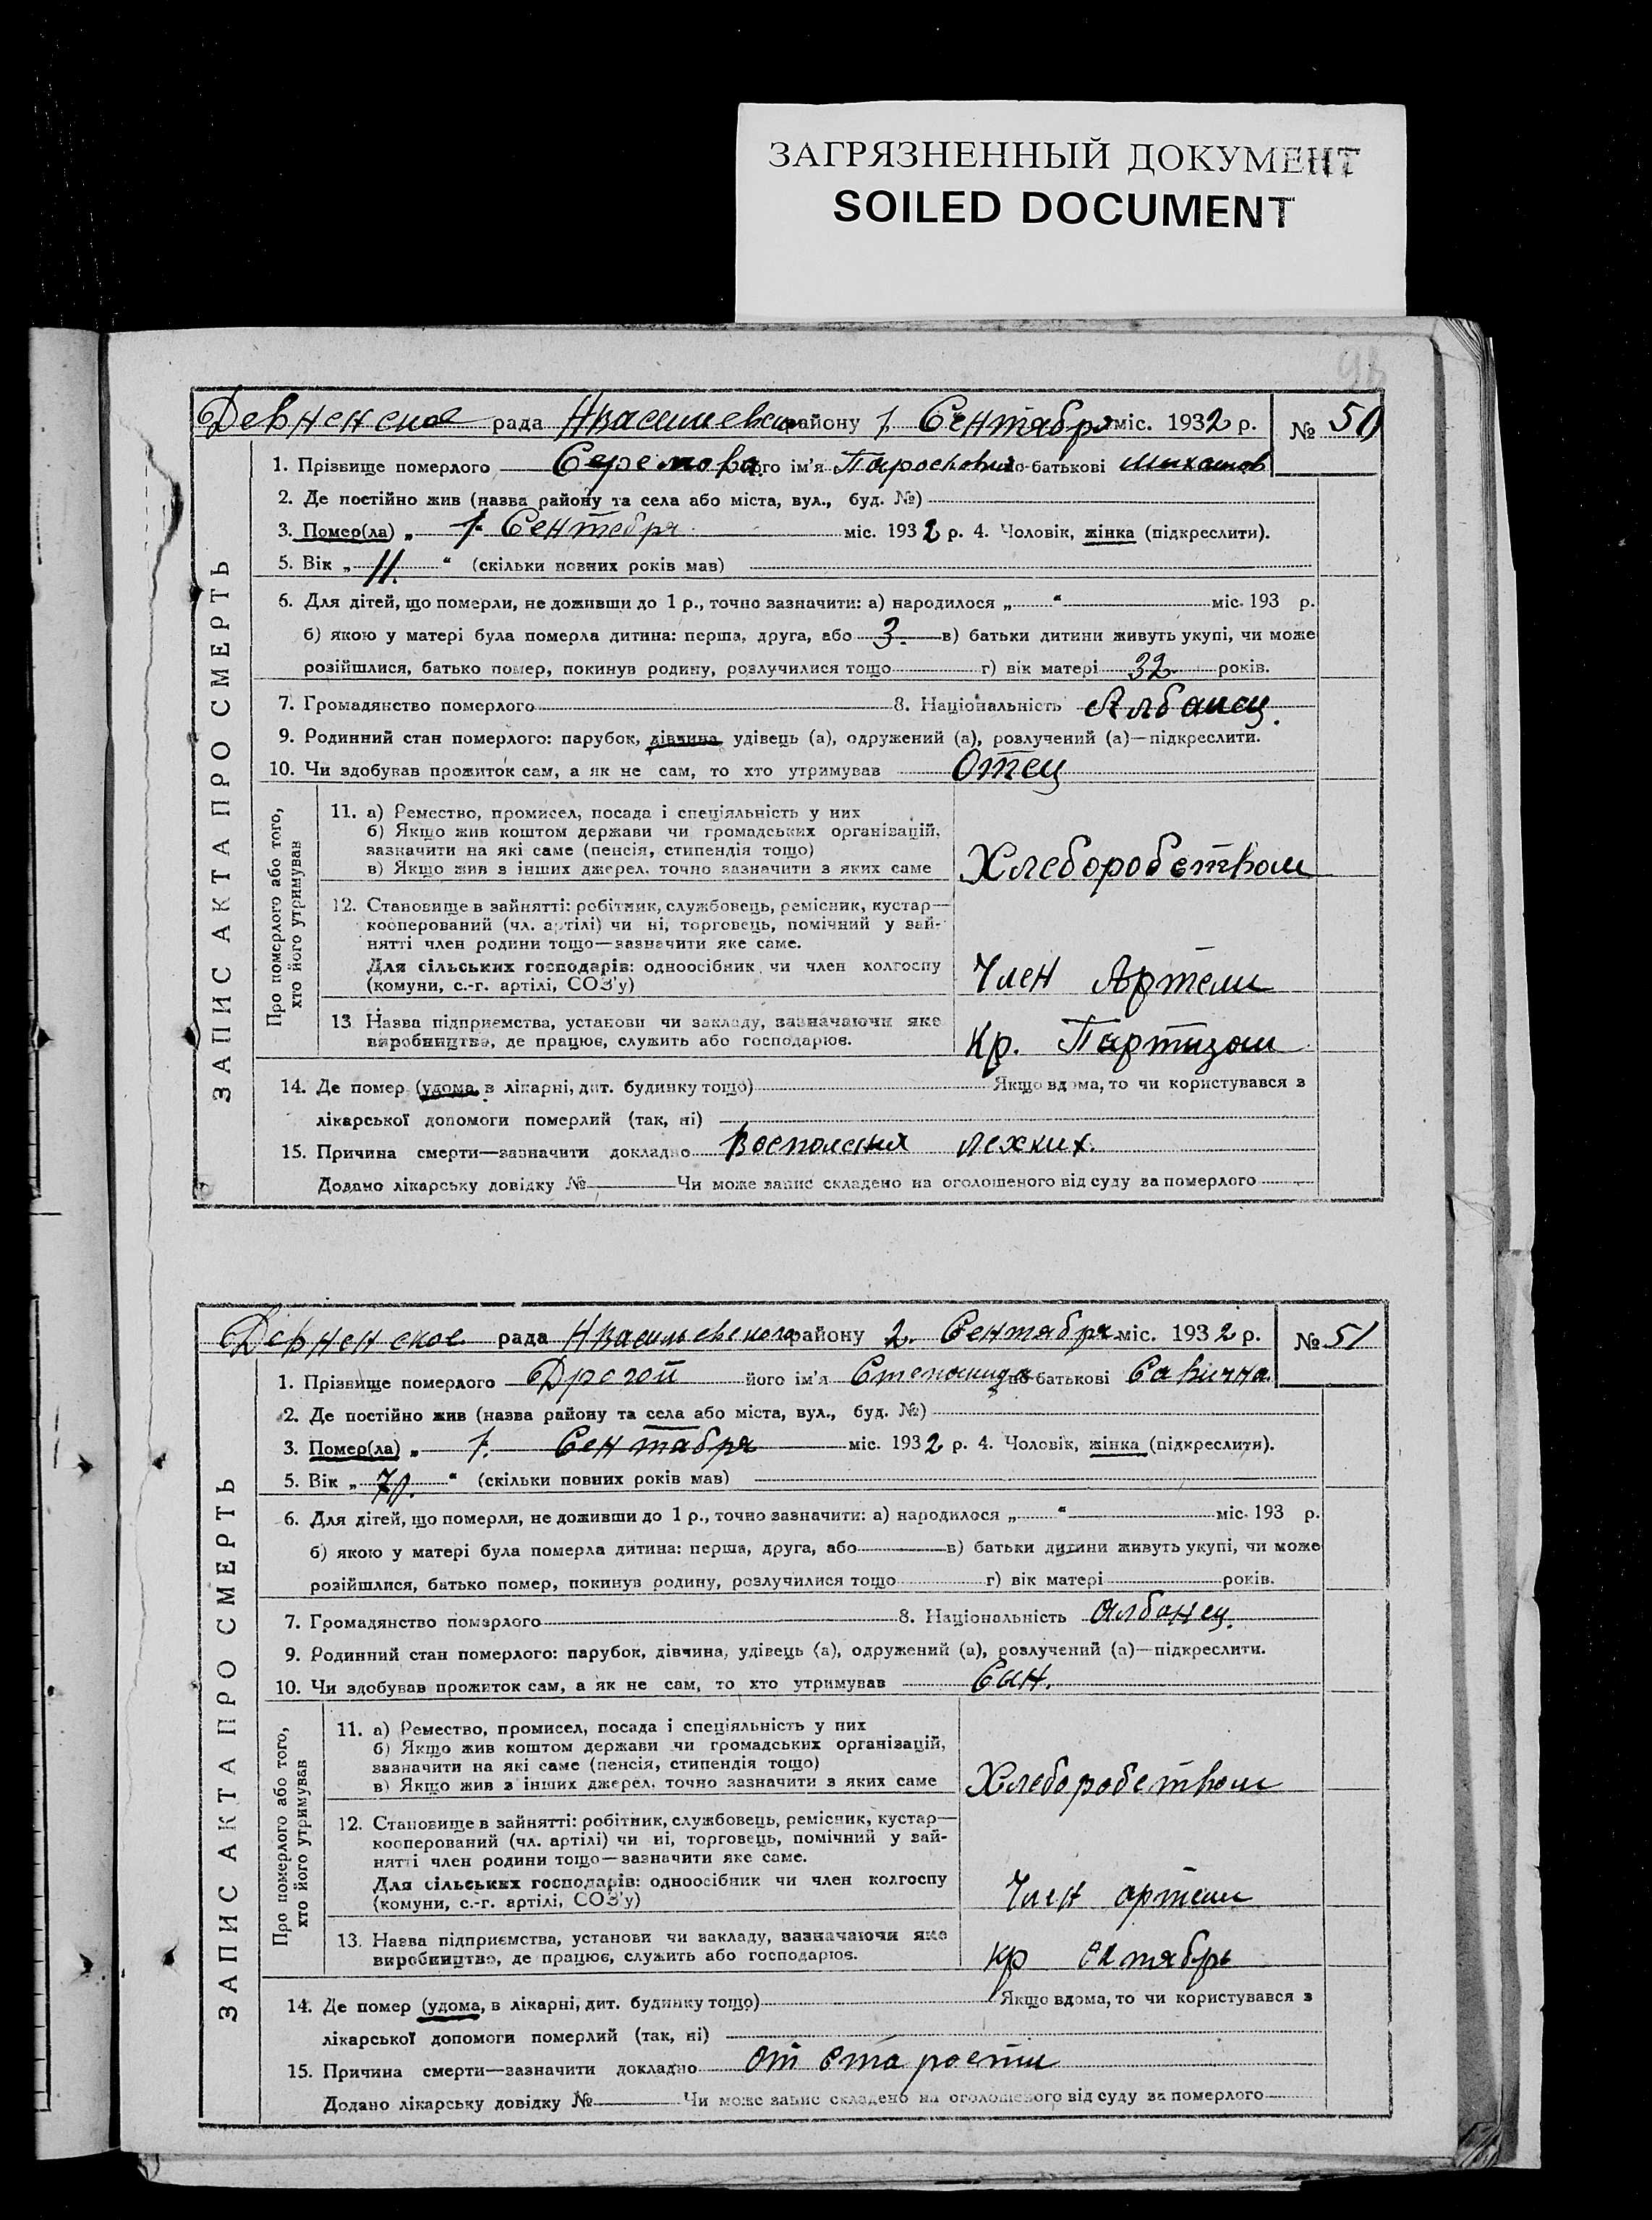 ЗАГРЯЗНЕННЫЙ ДОКУМЕНТ
SOILED DOCUMENT
Девненское рада Нвасилевско району 1. Сентября міс. 1932 р. № 50
1. Прізвище померлого його ім'я по-батькові
2. Де постійно жив (назва району та села або міста, вул., буд. №)
3. Помер(ла) „ 1. Сентебря міс. 1932 р. 4. Чоловік, жінка (підкреслити).
5. Вік „ 11. “ (скільки повних років мав)
6. Для дітей, що померли, не доживши до 1 р., точно зазначити: а) народилося „ “ міс. 193 р.
б) якою у матері була померла дитина: перша, друга, або 3. в) батьки дитини живуть укупі, чи може
розійшлися, батько помер, покинув родину, розлучилися тощо г) вік матері 32 років.
7. Громадянство померлого 8. Національність Албанец.
9. Родинний стан померлого: парубок, дівчина, удівець (а), одружений (а), розлучений (а)—підкреслити.
10. Чи здобував прожиток сам, а як не сам, то хто утримував Отец
11. а) Ремество, промисел, посада і спеціяльність у них
б) Якщо жив коштом держави чи громадських організацій,
зазначити на які саме (пенсія, стипендія тощо)
в) Якщо жив з інших джерел, точно зазначити з яких саме Хлеборобством
12. Становище в зайнятті: робітник, службовець, ремісник, кустар—
кооперований (чл. артілі) чи ні, торговець, помічний у зай-
нятті член родини тощо—зазначити яке саме.
Для сільських господарів: одноосібник чи член колгоспу
(комуни, с.-г. артілі, СОЗ'у) Член Артели
13 Назва підприємства, установи чи закладу, зазначаючи яке
виробництво, де працює, служить або господарює. Кр. Партизан
14. Де помер (удома, в лікарні, дит. будинку тощо) Якщо вдома, то чи користувався з
лікарської допомоги померлий (так, ні)
15. Причина смерти—зазначити докладно Воспаления лехких.
Додано лікарську довідку № Чи може запис складено на оголошеного від суду за померлого
Про померлого або того,
хто його утримував
ЗАПИС АКТА ПРО СМЕРТЬ
Девненское рада Нвасильевского району 2. Сентября міс. 1932 р. № 51
1. Прізвище померлого Драгой його ім'я Степанида по-батькові Савична.
2. Де постійно жив (назва району та села або міста, вул., буд. №)
3. Помер(ла) „ 1. Сентабря міс. 1932 р. 4. Чоловік, жінка (підкреслити).
5. Вік „ 70. “ (скільки повних років мав)
6. Для дітей, що померли, не доживши до 1 р., точно зазначити: а) народилося „ “ міс. 193 р.
б) якою у матері була померла дитина: перша, друга, або в) батьки дитини живуть укупі, чи може
розійшлися, батько помер, покинув родину, розлучилися тощо г) вік матері років.
7. Громадянство померлого 8. Національність Албанец.
9. Родинний стан померлого: парубок, дівчина, удівець (а), одружений (а), розлучений (а)—підкреслити.
10. Чи здобував прожиток сам, а як не сам, то хто утримував Сын.
11. а) Ремество, промисел, посада і спеціяльність у них
б) Якщо жив коштом держави чи громадських організацій,
зазначити на які саме (пенсія, стипендія тощо)
в) Якщо жив з інших джерел, точно зазначити з яких саме Хлеборобством
12. Становище в зайнятті: робітник, службовець, ремісник, кустар—
кооперований (чл. артілі) чи ні, торговець, помічний у зай-
нятті член родини тощо—зазначити яке саме.
Для сільських господарів: одноосібник чи член колгоспу
(комуни, с.-г. артілі, СОЗ'у) Член артели
13. Назва підприємства, установи чи закладу, зазначаючи яке
виробництво, де працює, служить або господарює. кр Октябрь
14. Де помер (удома, в лікарні, дит. будинку тощо) Якщо вдома, то чи користувався з
лікарської допомоги померлий (так, ні)
15. Причина смерти—зазначити докладно от старости
Додано лікарську довідку № Чи може запис складено на оголошеного від суду за померлого
Про померлого або того,
хто його утримував
ЗАПИС АКТА ПРО СМЕРТЬ